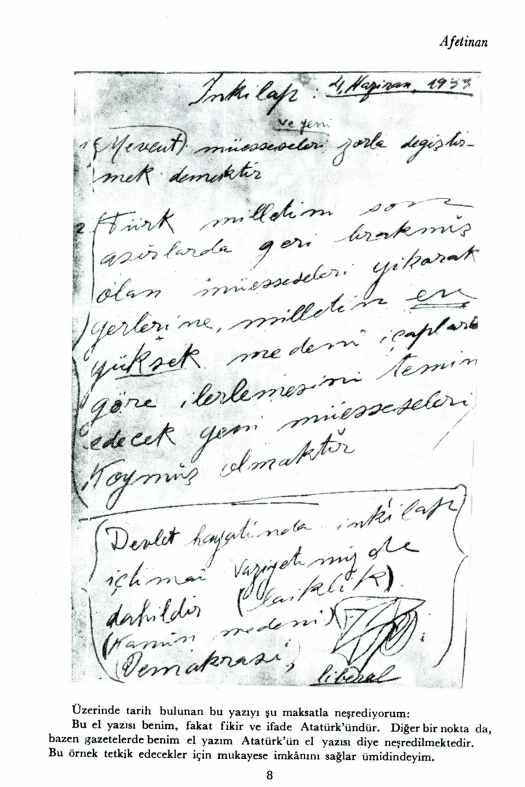 Afetinan
İnkilap : 4, Haziran, 1933
ve yeni
1 (Mevcut) müesseseleri zorla değiştir-
mek demektir
2 Türk milletini son
asırlarda geri bırakmış
olan müesseseleri yıkarak
yerlerine, milletin en
yüksek medenî icaplara
göre ilerlemesini temin
edecek yeni müesseseleri
koymuş olmaktır
Devlet hayatında inkilap
içtimai vaziyetimizde
dahildir (laiklik)
(Kanun medeni)
(Demokrasi,
liberal
Üzerinde tarih bulunan bu yazıyı şu maksatla neşrediyorum:
Bu el yazısı benim, fakat fikir ve ifade Atatürk'ündür. Diğer bir nokta da,
bazen gazetelerde benim el yazım Atatürk'ün el yazısı diye neşredilmektedir.
Bu örnek tetkik edecekler için mukayese imkânını sağlar ümidindeyim.
8